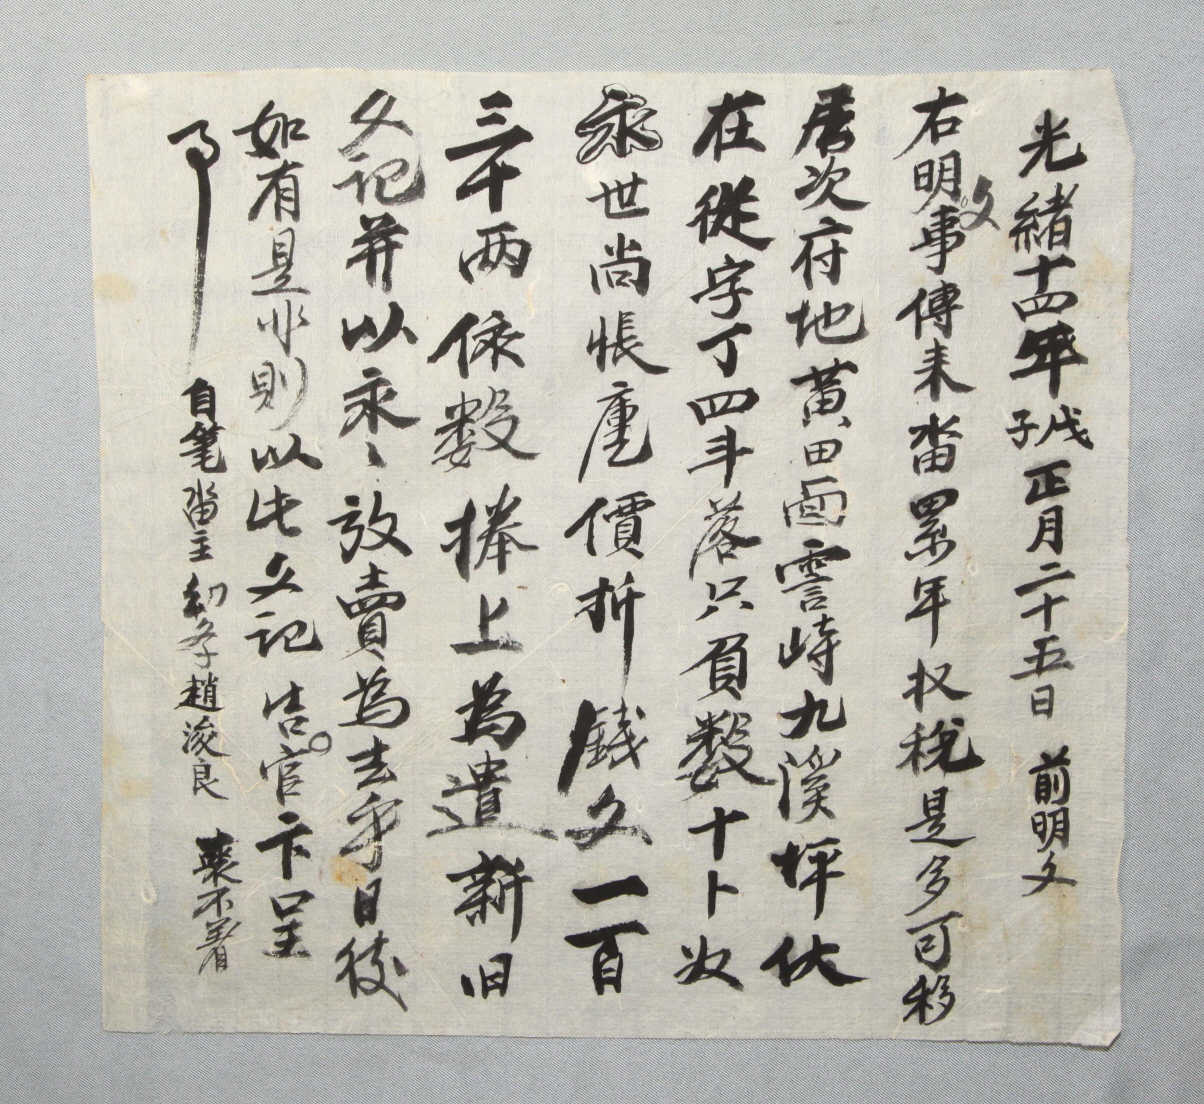 光緒十四年戊子正月二十五日 前明文
右明事段傳来畓累年收稅是多可移
居次府地黃田面雩峙九溪坪伏
在從字丁四斗落只負數十卜㐊
永世尚帳庫價折錢文一百
三十両依數捧上為遣新旧
文記并以永〻放賣為去乎日後
如有是非則以此文記告官卞呈
事
自筆畓主幼學趙浚良 喪不着